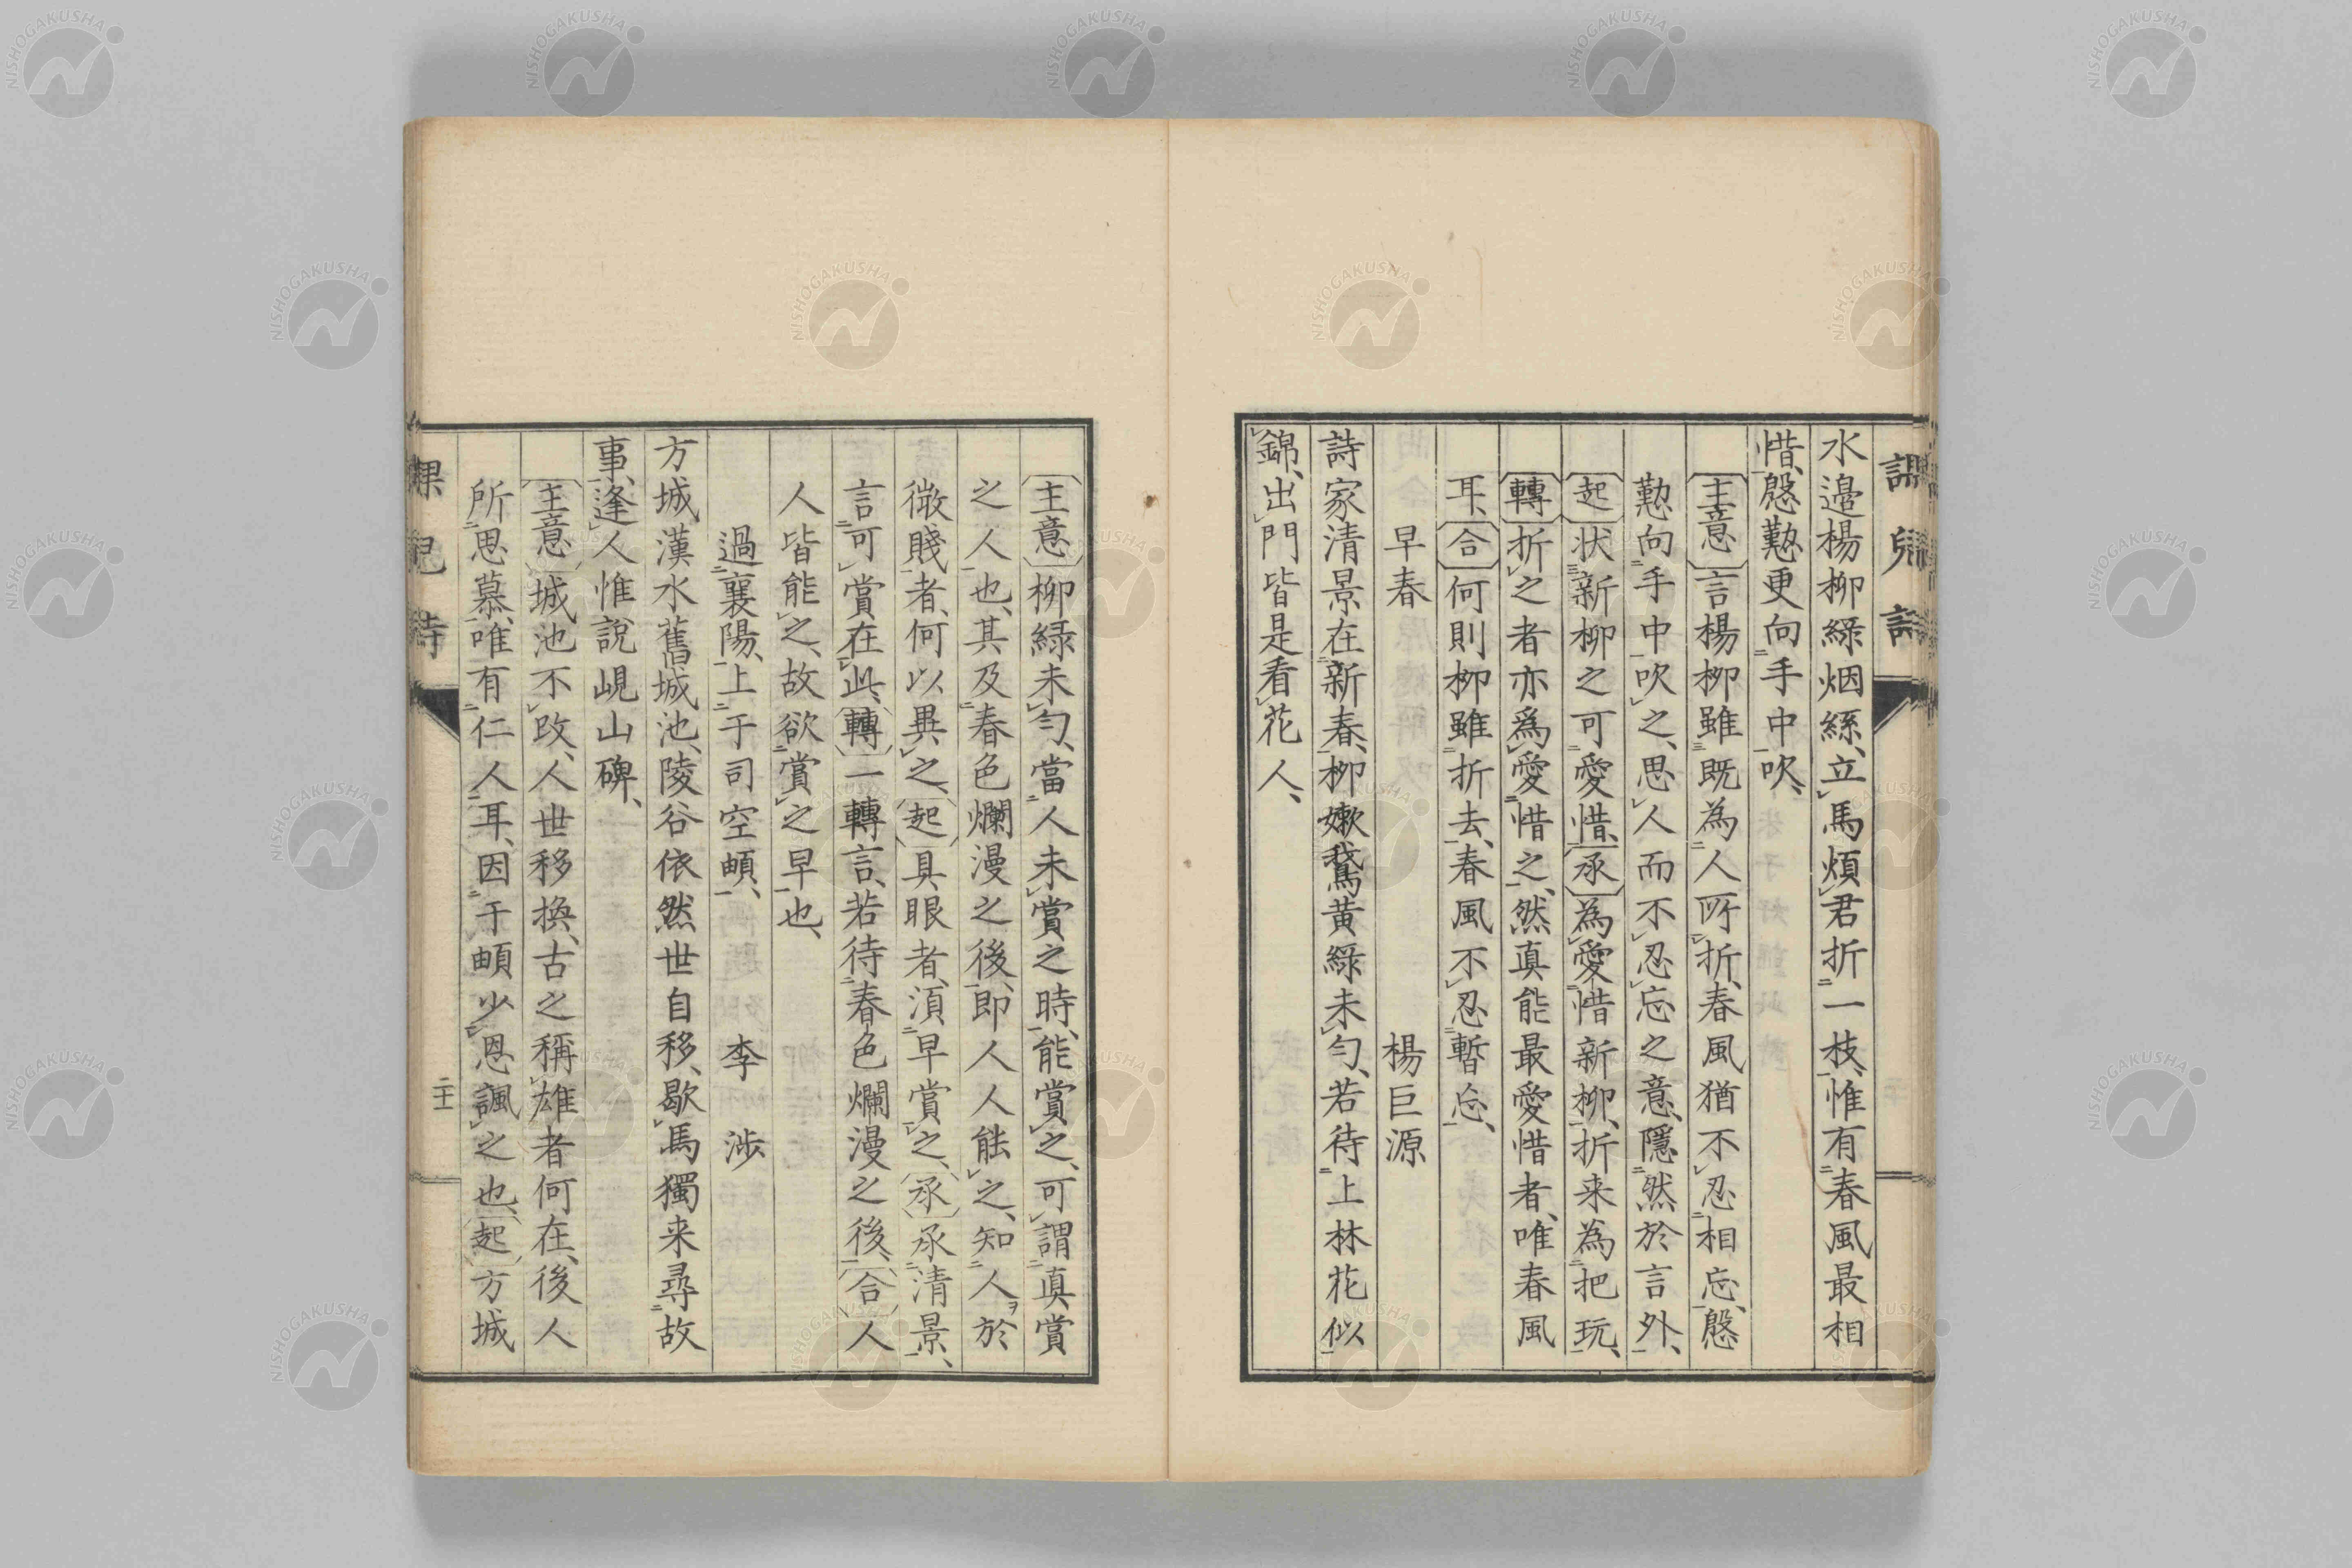 水邉楊柳綠烟絲、立馬煩君折一枝、惟有春風最相
惜、慇懃更向手中吹、
主意言楊柳雖既為人所折、春風猶不忍相忘、慇
懃向手中吹之、思人而不忍忘之意、隱然於言外、
起狀新柳之可愛惜、承為愛惜新柳、折来為把玩、
轉折之者亦爲愛惜之、然真能最愛惜者、唯春風
耳、合何則柳雖折去、春風不忍暫忘、
早春 楊巨源
詩家清景在新春、柳嫰鵞黄綠未勻、若待上林花似
錦、出門皆是看花人、
主意柳綠未勻、當人未賞之時、能賞之、可謂真賞
之人也、其及春色爛漫之後、即人人能之、知人ヲ於
微賤者、何以異之、起具眼者、須早賞之、承承清景、
言可賞在此、轉一轉言、若待春色爛漫之後、合人
人皆能之、故欲賞之早也、
過襄陽、上于司空頔、 李渉
方城漢水舊城池、陵谷依然世自移、歇馬獨来尋故
事、逢人惟說峴山碑、
主意城池不改、人世移換、古之稱雄者何在、後人
所思慕、唯有仁人耳、因于頔少恩諷之也、起方城
課兒詩
二十一
NISHOGAKUSHA